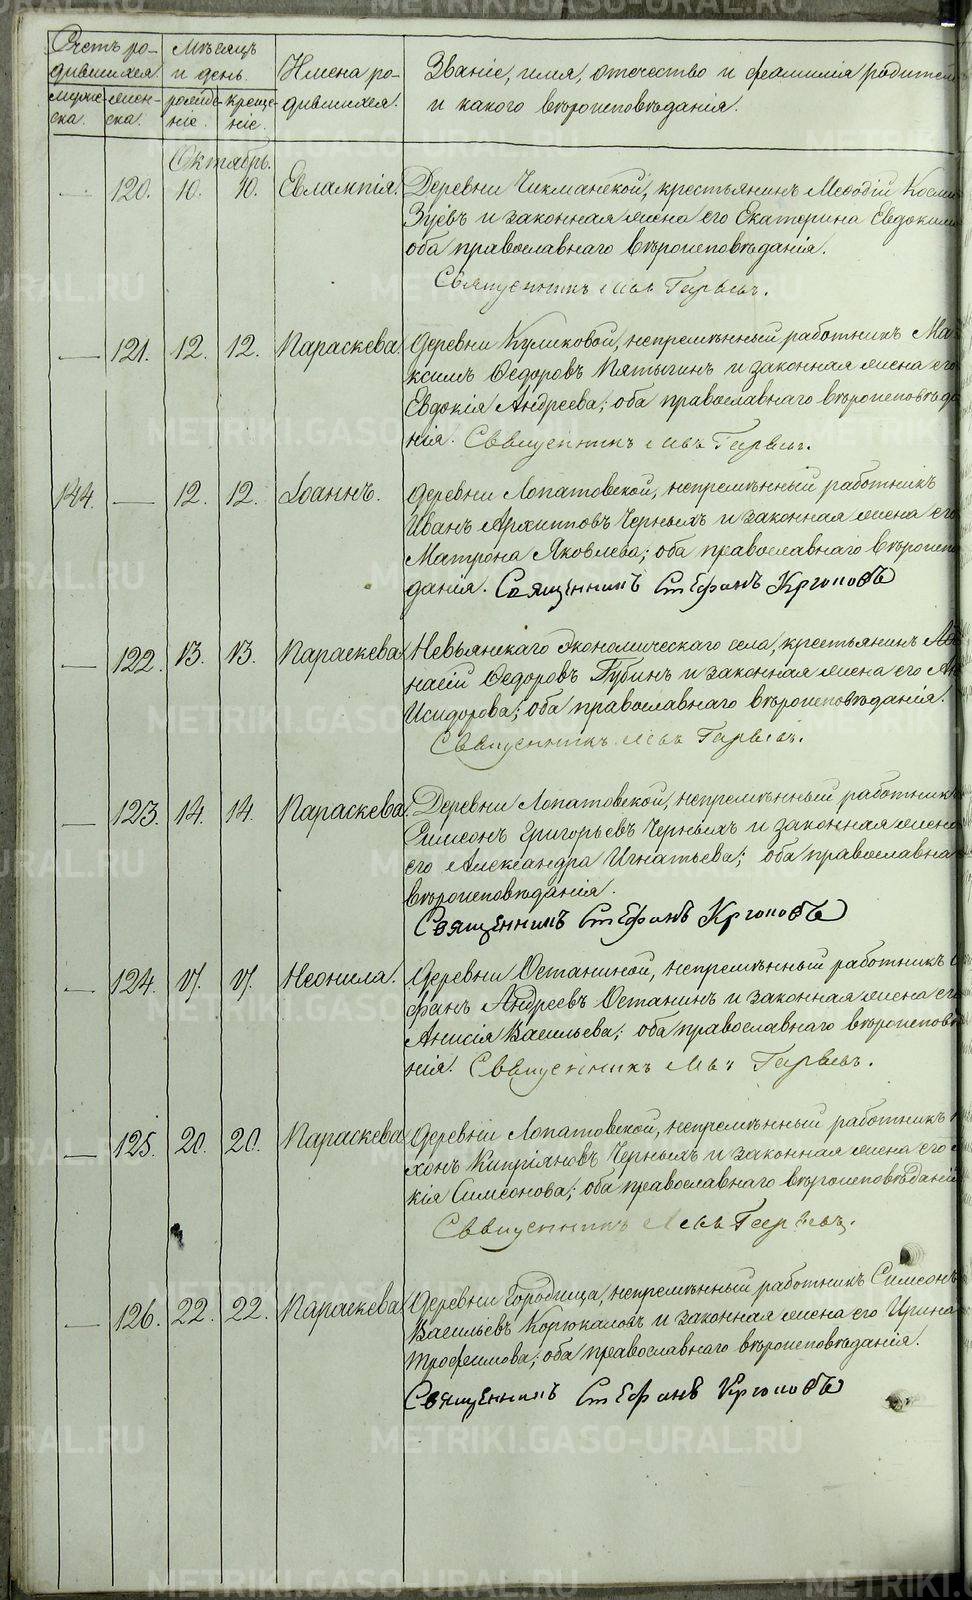 Счетъ ро-
дившихся.
мужес-
ка.
жен-
ска.
Мѣсяцъ
и день.
рожде-
ніе.
креще-
ніе.
Имена ро-
дившихся.
Званіе, имя, отечество и фамилія родител
и какого вѣроисповѣданія.
Октябрь.
— 120. 10. 10. Евлампія. Деревни Чикманской, крестьянинъ Меѳодій Косми
Зуевъ и законная жена его Екатерина Евдоким
оба православнаго вѣроисповѣданія.
Священникъ Левъ
— 121. 12. 12. Параскева. Деревни Куликовой, непремѣнный работникъ Ма-
ксимъ Ѳедоровъ Пятыгинъ и законная жена его
Евдокія Андреева; оба православнаго вѣроисповѣда
нія. Священникъ Левъ
144. — 12. 12. Іоаннъ. Деревни Лопатовской, непремѣнный работникъ
Иванъ Архиповъ Черныхъ и законная жена его
Матрона Яковлева; оба православнаго вѣроиспо
данія. Священникъ Стефанъ Крюковъ
— 122. 13. 13. Параскева. Невьянскаго экономическаго села, крестьянинъ Аѳ
насій Ѳедоровъ Губинъ и законная жена его Ан
Исидорова; оба православнаго вѣроисповѣданія.
Священникъ Левъ
— 123. 14. 14. Параскева. Деревни Лопатовской, непремѣнный работникъ
Симеонъ Григорьевъ Черныхъ и законная жена
его Александра Игнатьева; оба православна
вѣроисповѣданія.
Священникъ Стефанъ Крюковъ
— 124. 17. 17. Неонила. Деревни Останиной, непремѣнный работникъ С
фанъ Андреевъ Останинъ и законная жена его
Анисія Васильева; оба православнаго вѣроисповѣ
нія. Священникъ Левъ
— 125. 20. 20. Параскева. Деревни Лопатовской, непремѣнный работникъ
хонъ Кипріяновъ Черныхъ и законная жена его
кія Симеонова; оба православнаго вѣроисповѣданія
Священникъ Левъ
— 126. 22. 22. Параскева. Деревни Городища, непремѣнный работникъ Симеонъ
Васильевъ Корюкаловъ и законная жена его Ирина
Трофимова; оба православнаго вѣроисповѣданія.
Священникъ Стефанъ Крюковъ
METRIKI.GASO-URAL.RU